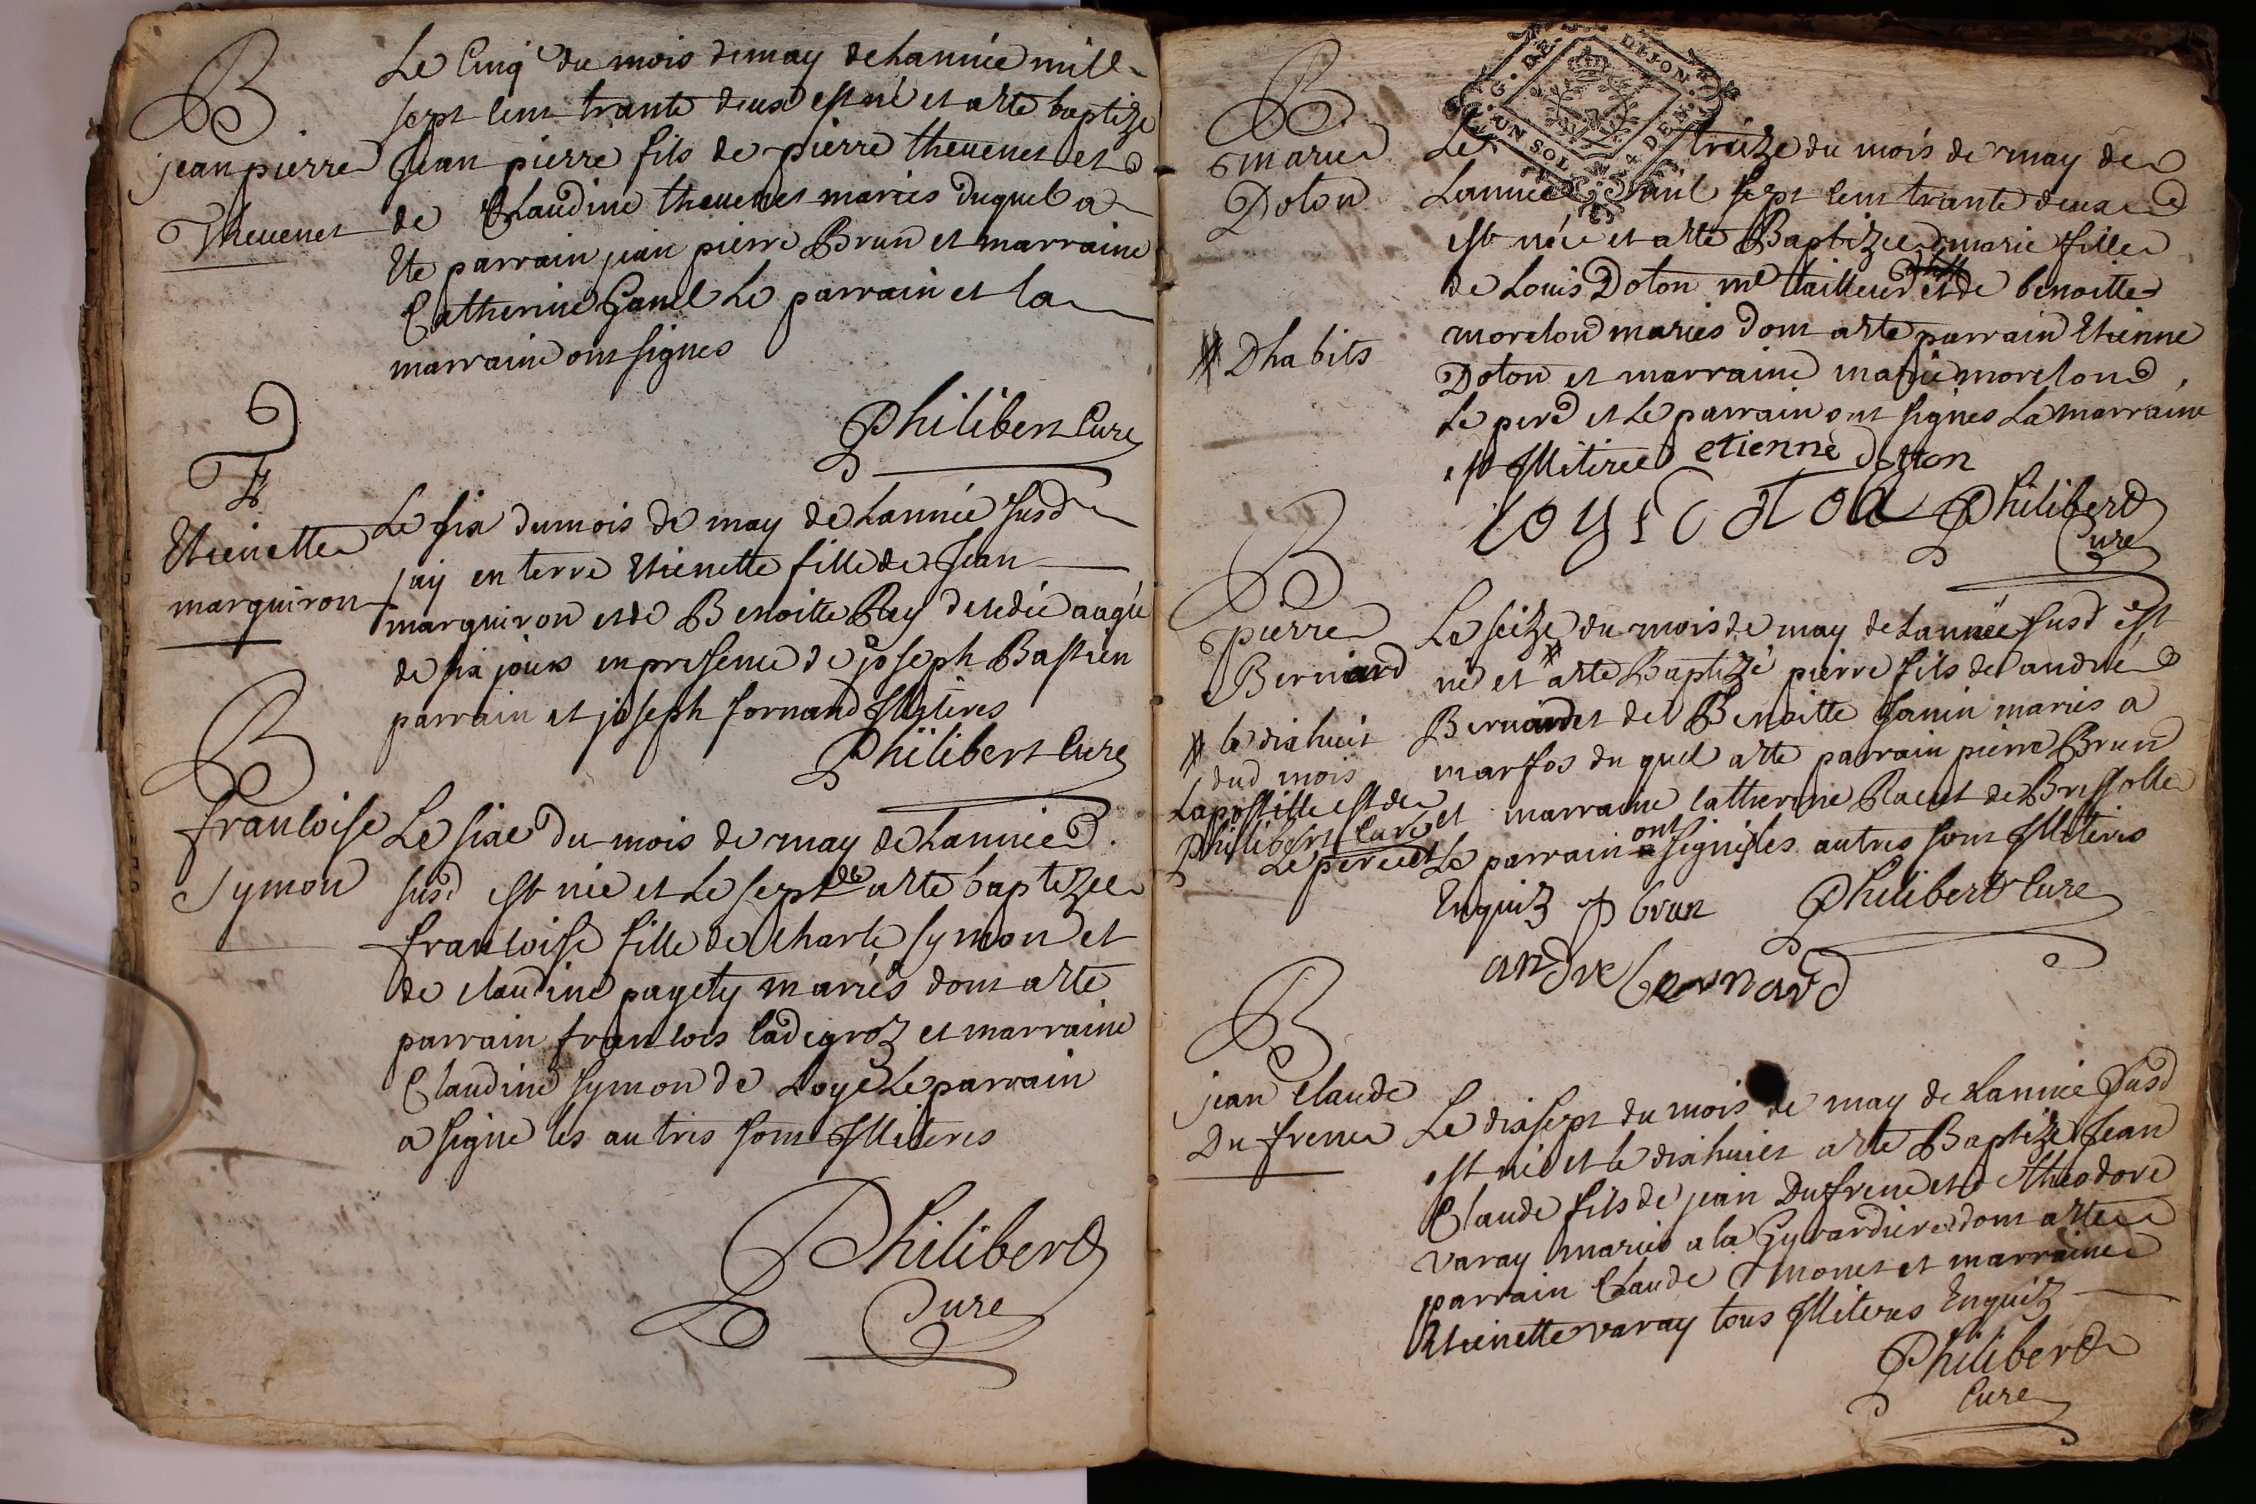 B
jean pierre
Thevenet
Le Cinq du mois de may de Lannée mill
sept cent trante deux est né et a ette baptizé
Jean pierre fils de pierre thevenet et
de Claudine thevenet mariés duquel a
Ete parrain jean pierre Brun et marraine
Catherine Ganel Le parrain et la
marraine ont signes
Philibert Curé
Etienette
marquiron
Le six du mois de may de Lannée susd
jay en terre Etienette fille de Jean
marquiron et de Benoitte Rey decedée aagée
de six jours en presence de joseph Bastien
parrain et joseph fornand Illiteres
Philibert Curé
B
francoise
Symon
Le six du mois de may de Lannée
susd est née et Le sept a ette baptizee
francoise fille de Charle Symon et
de claudine payety mariés dont a ette
parrain francois Cadegroz et marraine
Claudine Symon de Loye Le parrain
a signe les autres sont Illiteres
Philibert
Curé
G. DE DIJON
UN SOL 4 DEN.
B
marie
Doton
# Dhabits
Le treize du mois de may de
Lannee mil sept cent trante deux
est née et a ette Baptizee marie fille
de Louis Doton me tailleur # et de benoitte
morelon mariés dont a ette parrain Etienne
Doton et marraine marie morelon
Le pere et Le parrain ont signes La marraine
est Illiteree etienne dotton
Philibert
Curé
B
pierre
Bernard
# le dixhuit
dud mois
Lapostille est de
Philibert Curé
Le seize du mois de may de Lannée susd est
né et # a ette Baptizé pierre fils de andré
Bernard et de Benoitte Janin mariés a
marfos du quel a ette parrain pierre Brun
et marraine Catherine Racut de Brissolle
Le pere et Le parrain ont signés les autres sont Illiteres
Enquis p brun Philibert Curé
andre bernard
B
jean Claude
Dufrene
Le dixsept du mois de may de Lannée Susd
est né et le dixhuict a ette Baptizé Jean
Claude fils de jean Dufrene et de theodore
varay mariés a la Gyrardiere dont a ette
parrain Claude monet et marraine
Etienette varay tous Illiteres Enquis
Philibert
Curé